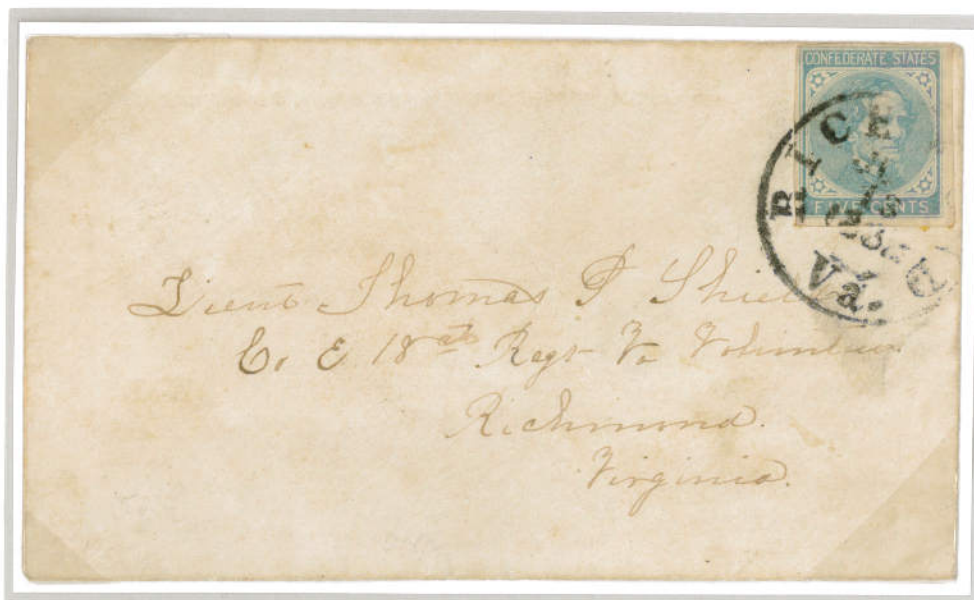 CONFEDERATE STATES
FIVE CENTS
RICE
Va.
Lieut Thomas P Shiel
Co E 18th Regt Va
Richmond.
Virginia.